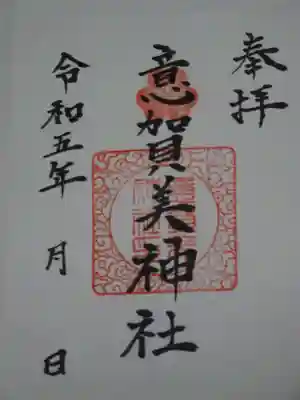 奉拝
意賀美神社
令和五年 月 日